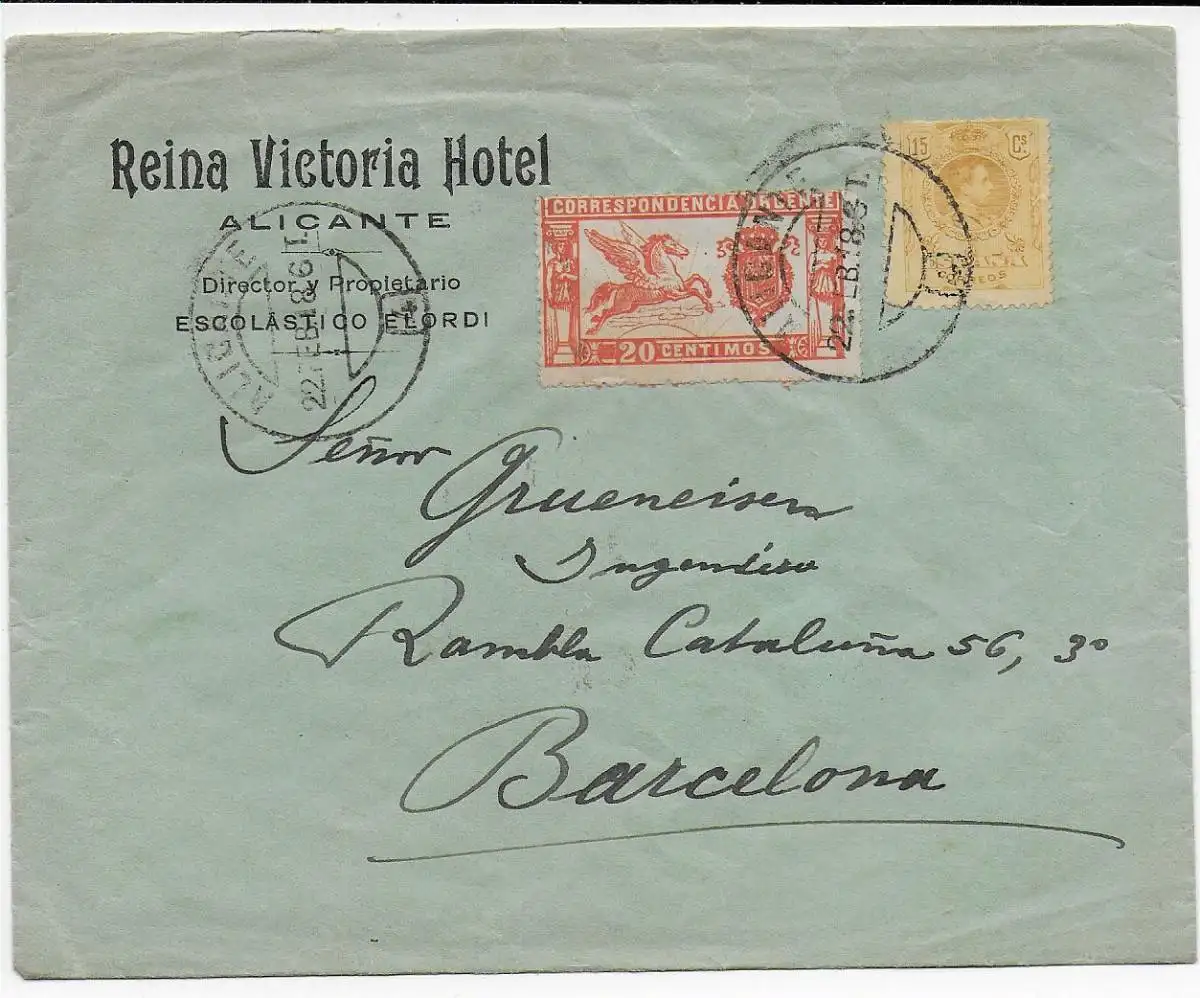 Reina Victoria Hotel
ALICANTE
Director y Propietario
ESCOLÁSTICO ELORDI
CORRESPONDENCIA URGENTE
20 CENTIMOS
15 Cs.
ALICANTE
22.FEB.18.6T.
ALICANTE
22.FEB.18.6T.
Señor
Grueneisen
Ingeniero
Rambla Cataluña 56, 3º
Barcelona